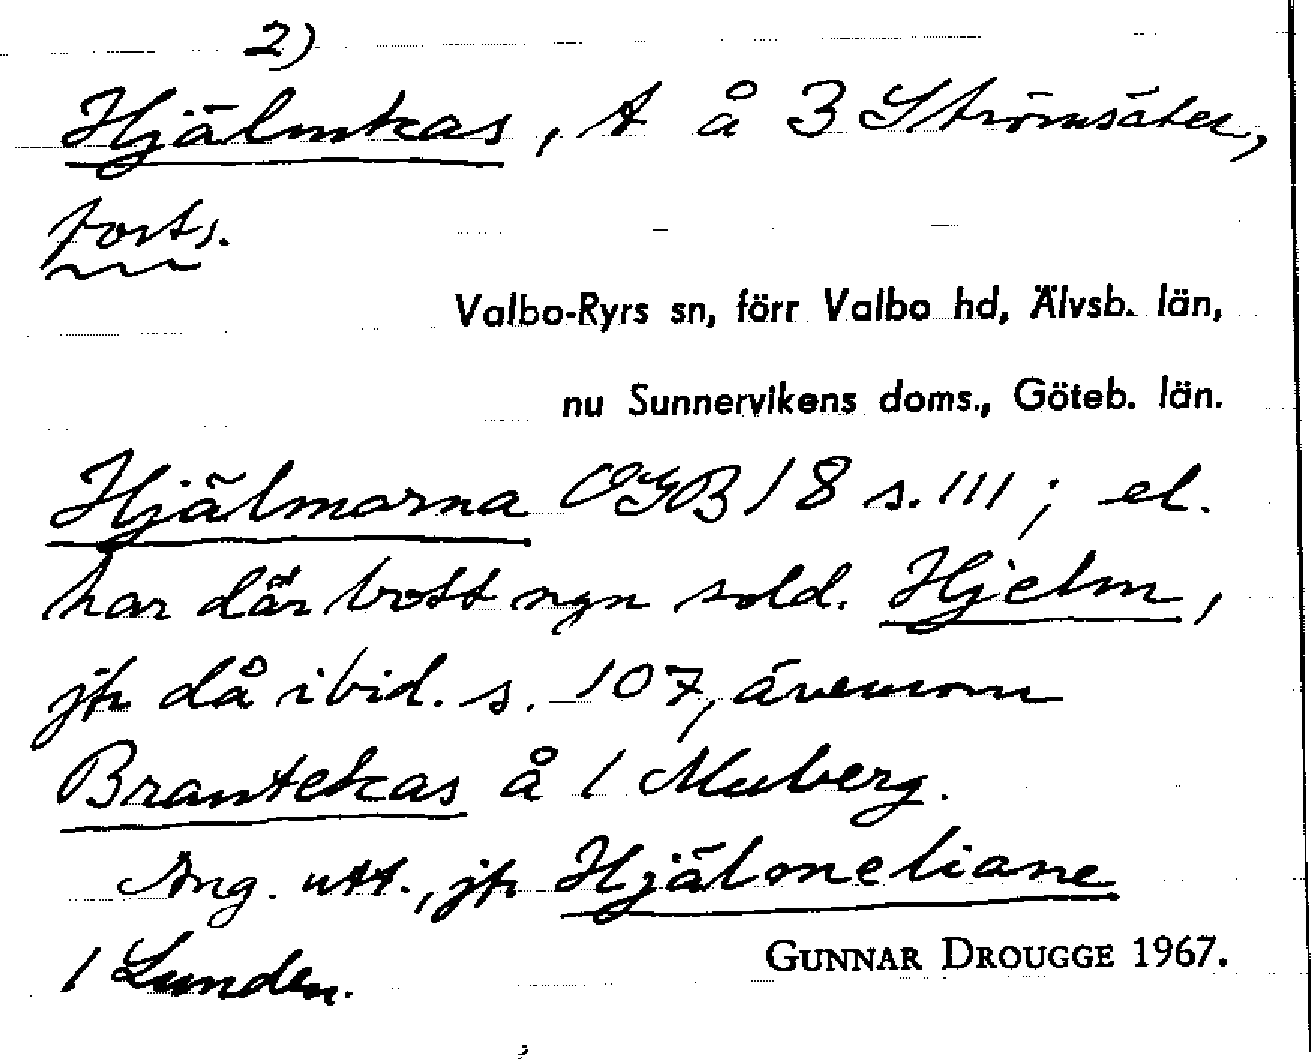 2)
Hjälmkas, t å 3 Strömsäter,
forts.
Valbo-Ryrs sn, förr Valbo hd, Älvsb. län,
nu Sunnervikens doms., Göteb. län.
Hjälmarna OGB 18 s. 111; el.
har där bott ngn sold. Hjelm,
jfr då ibid. s. 107, ävensom
Brantekas å 1 Muberg.
Ang. utt., jfr Hjälmeliane
1 Lunden.
GUNNAR DROUGGE 1967.